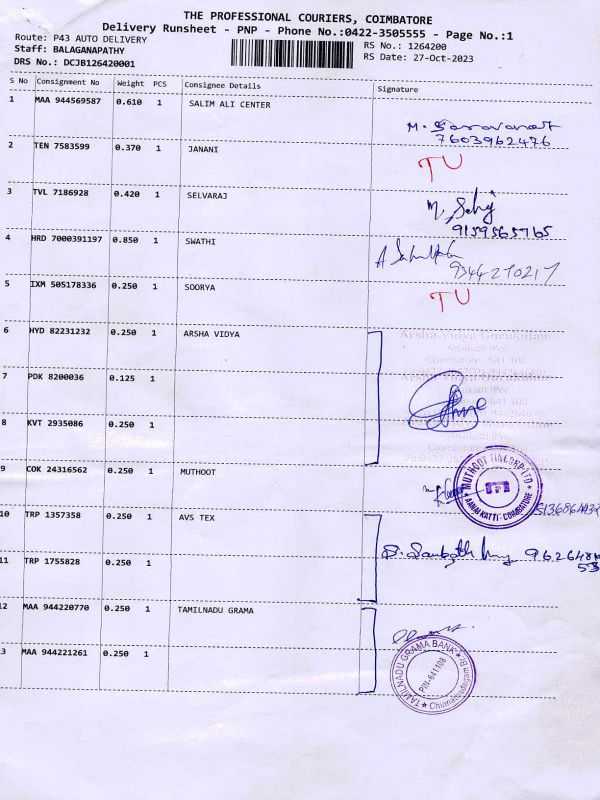 THE PROFESSIONAL COURIERS, COIMBATORE
Delivery Runsheet - PNP - Phone No.:0422-3505555 - Page No.:1
Route: P43 AUTO DELIVERY
Staff: BALAGANAPATHY
DRS No.: DCJB126420001
RS No.: 1264200
RS Date: 27-Oct-2023
S No Consignment No Weight PCS Consignee Details Signature
1 MAA 944569587 0.610 1 SALIM ALI CENTER
M. Saravanan
7603962476
2 TEN 7583599 0.370 1 JANANI
TU
3 TVL 7186928 0.420 1 SELVARAJ
M. Selvj
9159565765
4 HRD 7000391197 0.850 1 SWATHI
9344270217
5 IXM 505178336 0.250 1 SOORYA
TU
6 HYD 82231232 0.250 1 ARSHA VIDYA
Arsha Vidya Gurukulam
Anaikatti (Po)
Coimbatore - 641 108
7 PDK 8200036 0.125 1
8 KVT 2935086 0.250 1
9 COK 24316562 0.250 1 MUTHOOT
MUTHOOT FINCORP LTD
ANAIKATTI - COIMBATORE
10 TRP 1357358 0.250 1 AVS TEX
11 TRP 1755828 0.250 1
12 MAA 944220770 0.250 1 TAMILNADU GRAMA
13 MAA 944221261 0.250 1
TAMILNADU GRAMA BANK
PIN-641108